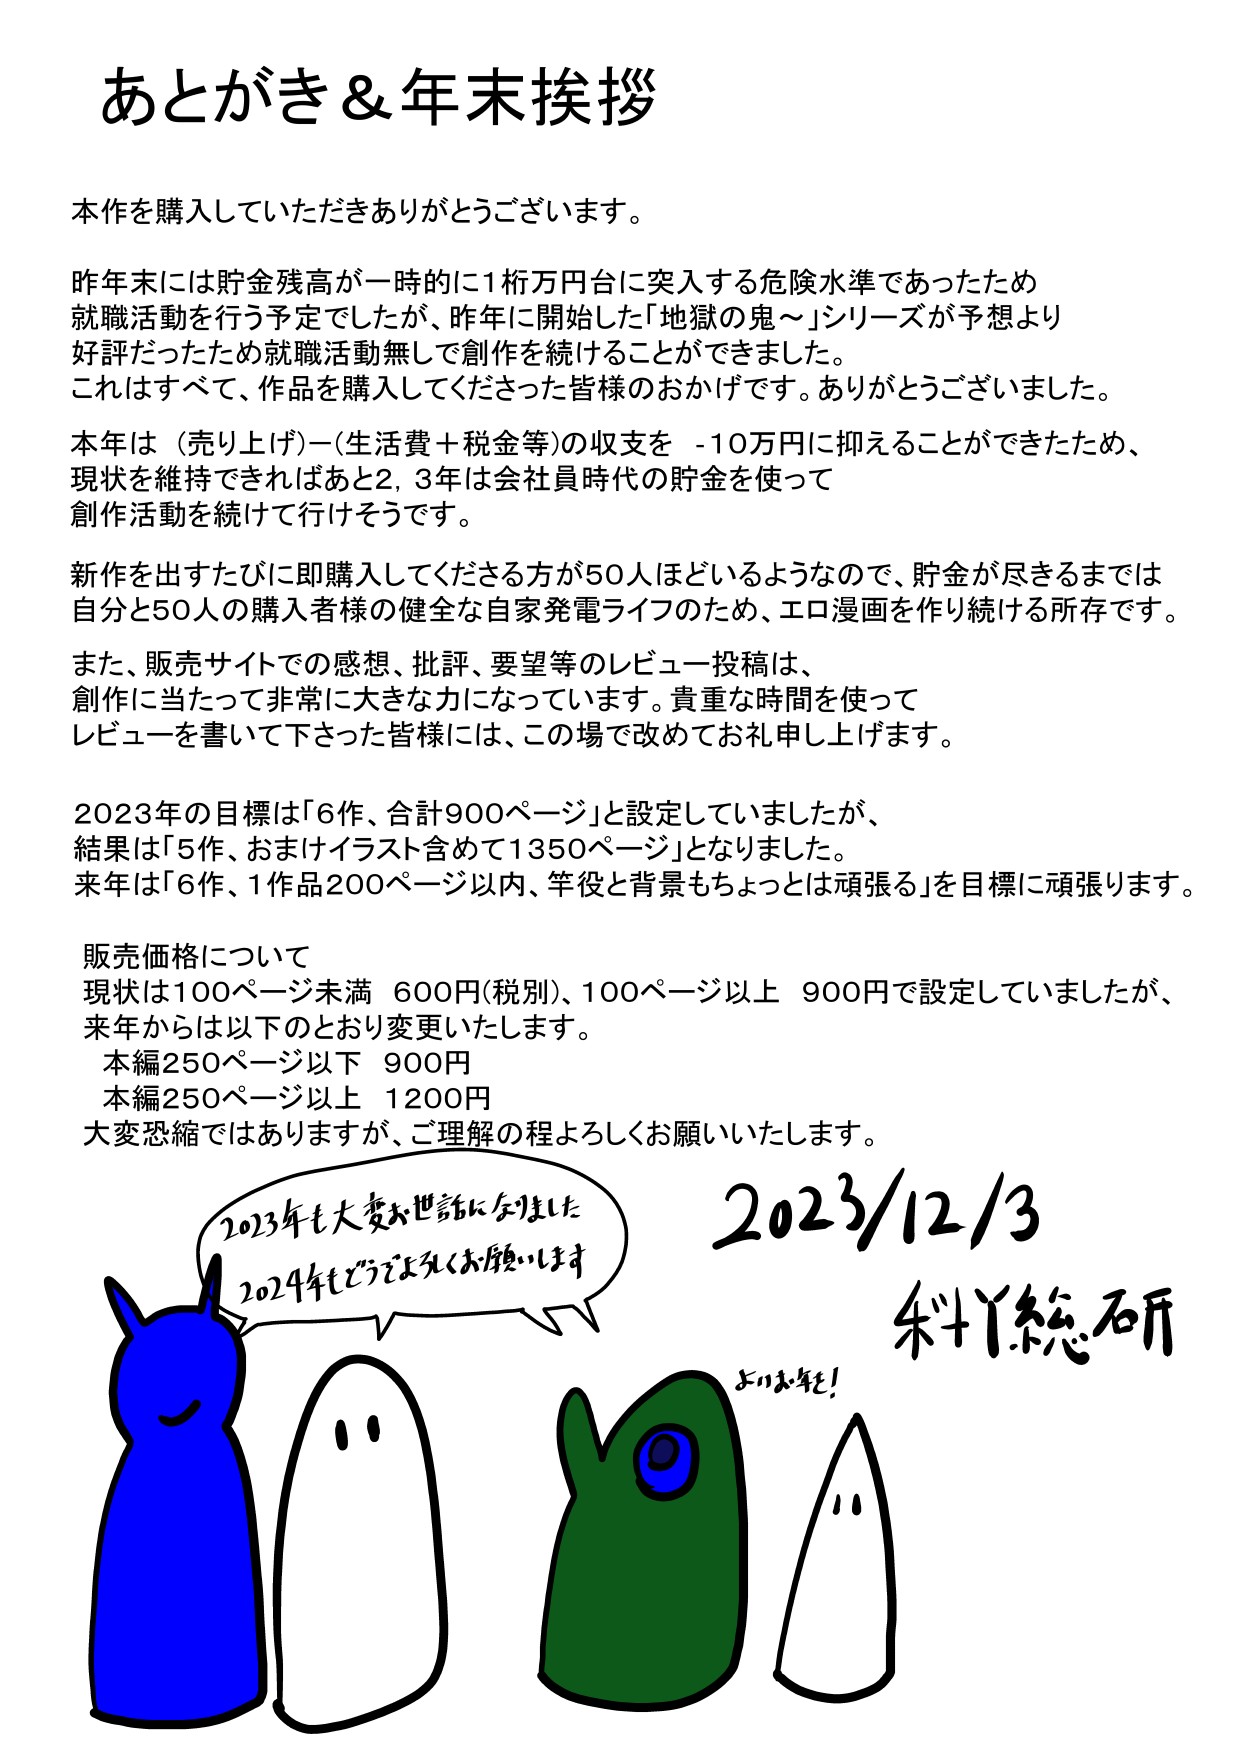 あとがき&年末挨拶
本作を購入していただきありがとうございます。
昨年末には貯金残高が一時的に1桁万円台に突入する危険水準であったため
就職活動を行う予定でしたが、昨年に開始した「地獄の鬼～」シリーズが予想より
好評だったため就職活動無しで創作を続けることができました。
これはすべて、作品を購入してくださった皆様のおかげです。ありがとうございました。
本年は (売り上げ)ー(生活費+税金等)の収支を -10万円に抑えることができたため、
現状を維持できればあと2, 3年は会社員時代の貯金を使って
創作活動を続けて行けそうです。
新作を出すたびに即購入してくださる方が50人ほどいるようなので、貯金が尽きるまでは
自分と50人の購入者様の健全な自家発電ライフのため、エロ漫画を作り続ける所存です。
また、販売サイトでの感想、批評、要望等のレビュー投稿は、
創作に当たって非常に大きな力になっています。貴重な時間を使って
レビューを書いて下さった皆様には、この場で改めてお礼申し上げます。
2023年の目標は「6作、合計900ページ」と設定していましたが、
結果は「5作、おまけイラスト含めて1350ページ」となりました。
来年は「6作、1作品200ページ以内、竿役と背景もちょっとは頑張る」を目標に頑張ります。
販売価格について
現状は100ページ未満 600円(税別)、100ページ以上 900円で設定していましたが、
来年からは以下のとおり変更いたします。
本編250ページ以下 900円
本編250ページ以上 1200円
大変恐縮ではありますが、ご理解の程よろしくお願いいたします。
2023年も大変お世話になりました
2024年もどうぞよろしくお願いします
2023/12/3
料丫総研
よいお年を!